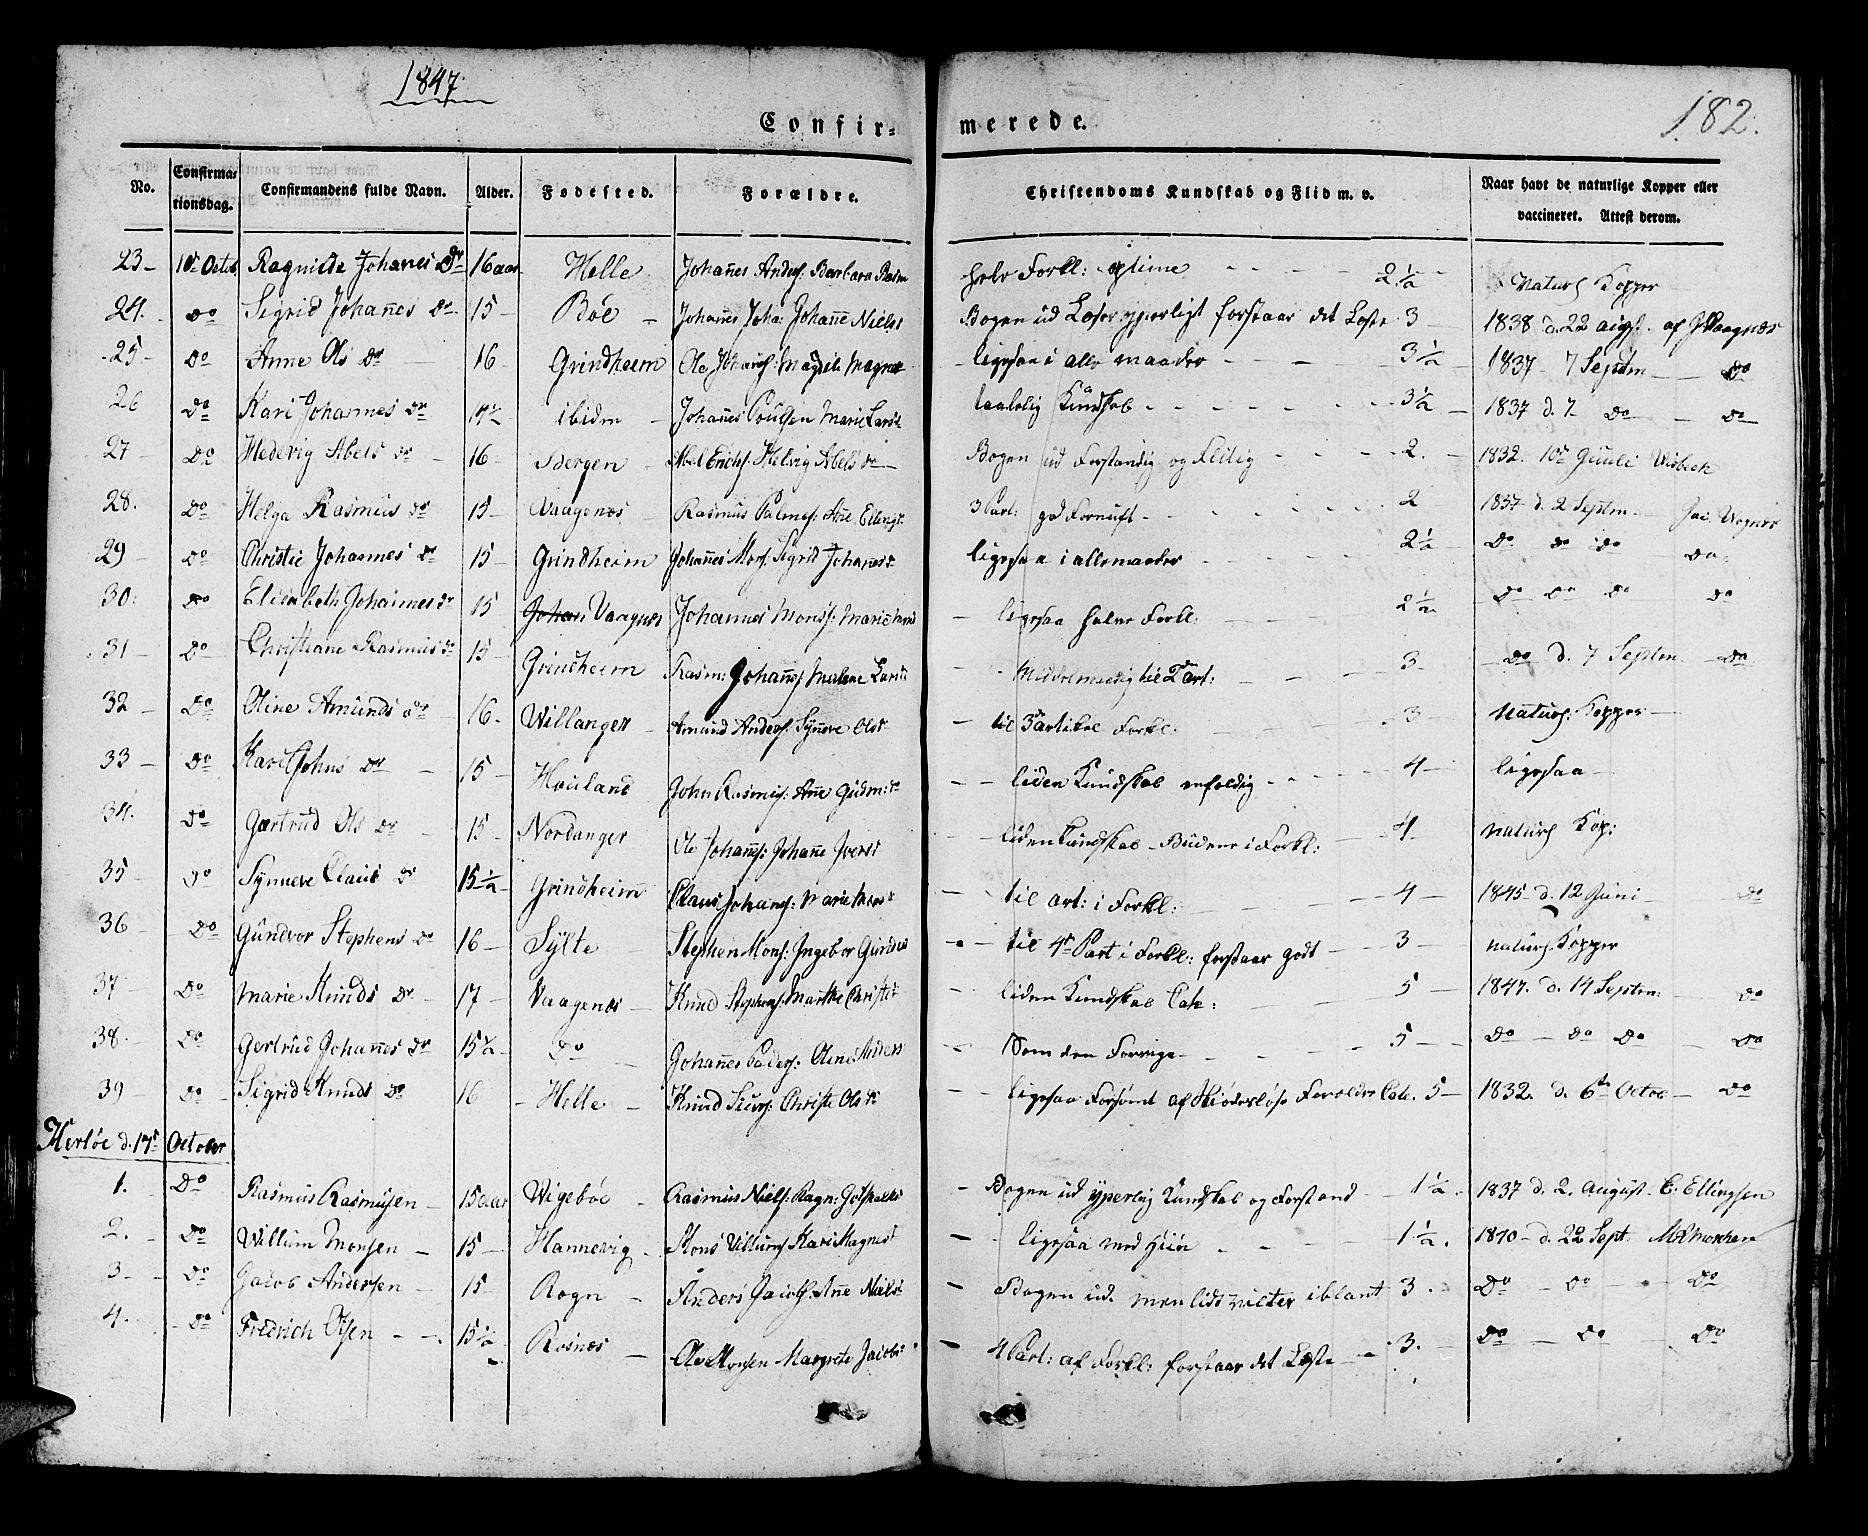 1847
182.
Confir- merede.
No. Confirmationsdag. Confirmandens fulde Navn. Alder. Fødested. Forældre. Christendoms Kundskab og Flid m. v. Naar havt de naturlige Kopper eller vaccineret. Attest derom.
23 10de Octob. Ragnilde Johanes Dr 16 aar Helle Johañes Anders: Barbara Rasm hele Forkl: optime 2½ Naturl Kopper
24. do Sigrid Johañes dr 15 Böe Johañes Joha: Johañe Niels Bogen ud Læser yperligt forstaar det Læste 3 1838 d. 22 aug. af J Waagnæs
25 do Anne Ols dr 16 Grindheim Ole Magdele Magne ligesaa i alle maader 3½ 1837 7 Septm do
26 do Kari Johannes dr ibidm Johañes Poulsen Marie Lars taalelig Kundskab 3½ 1837 d. 7 do do
27 do Hedevig Abels dr 16 Bergen Abel Erichs: Helvig Abels dr Bogen ud Forstandig og Flitig 2. 1832. 10de Juuli Wisbeck
28. do Helga Rasmus dr 15 Vaagenæs Rasmus Palmes: Añe Ellings 3 Part: god Fornuft 2 1837 d. 2 Septm Jac: Wognæs
29 do Christie Johannes dr 15 Grindheim Johañes Mons: Sigrid Johanes ligesaa i alle maader 2½ do do do do
30. do Elisabeth Johannes dr 15 Johan Vaagnæs Johannes Mons: Marie Mons ligesaa halve Forkl: 2½ do do do do
31 do Christiane Rasmus dr 15 Grindheim Rasm: Johañes Malene Lars Middelmaadig til 2 art: 3 do d. 7 Septm. do
32 do Oline Amunds dr 16. Willanger Amund Anders: Synneve Ols til 3 artikel Forkl. 3 Naturl: Kopper
33 do Kari Johns dr 15 Houland John Rasmus: Añe Gudm: liden Kundskab enfoldig 4 ligesaa
34. do Gærtrud Ols dr 15 Nordanger Ole Johañes: Johañe Ivers liden Kundskab i Forkl: 4 naturl Kop:
35 do Synneve Claus dr 15½ Grindheim Claus Johañes: Marie Mons til art: i Forkl: 4 1845 d. 12 Juni do
36 do Gundvor Stephens dr 16 Sylte Stephen Mons: Ingebor til 4de Part i Forkl: forstaar godt 3 naturl Kopper
37 do Marie Knuds dr 17 Vaagenæs Knud Stephens: Marthe Christ liden Kundskab Cate: 5 1847. d. 14 Septm: do
38. do Gertrud Johañes dr 15½ do Johañes Peders: Oline Anders Som den Forrige 5 do do do do
39 do Sigrid Knuds dr 16 Helle Knud Siurs: Christi Ols ligesaa Forsømt af Skiødesløse Forældre Cate. 5 1832. d. 6te Octob do
Herløe d. 17de October
1. do Rasmus Rasmusen 15 aar Wigebøe Rasmus Niels: Ragn: Gotskalks Bogen ud yperlig Kundskab og Forstand 1½. 1837 d. 2. August. C: Ellingsen
2. do Willum Monsen 15 Hannevig Mons Villums: Kari Magnes ligesaa med 1½. 1840 d. 22 Sept. Mormchen
3 do Jacob Andersen 15 Rogn Anders Jacobs: Añe Niels Bogen ud. men lidt iblant 3. do do do
4. do Fredrich Olsen 15½ Rosnæs Ole Monsen Margrete Jacobs 4 Part: af Forkl: forstaar det Læste 3. do do do